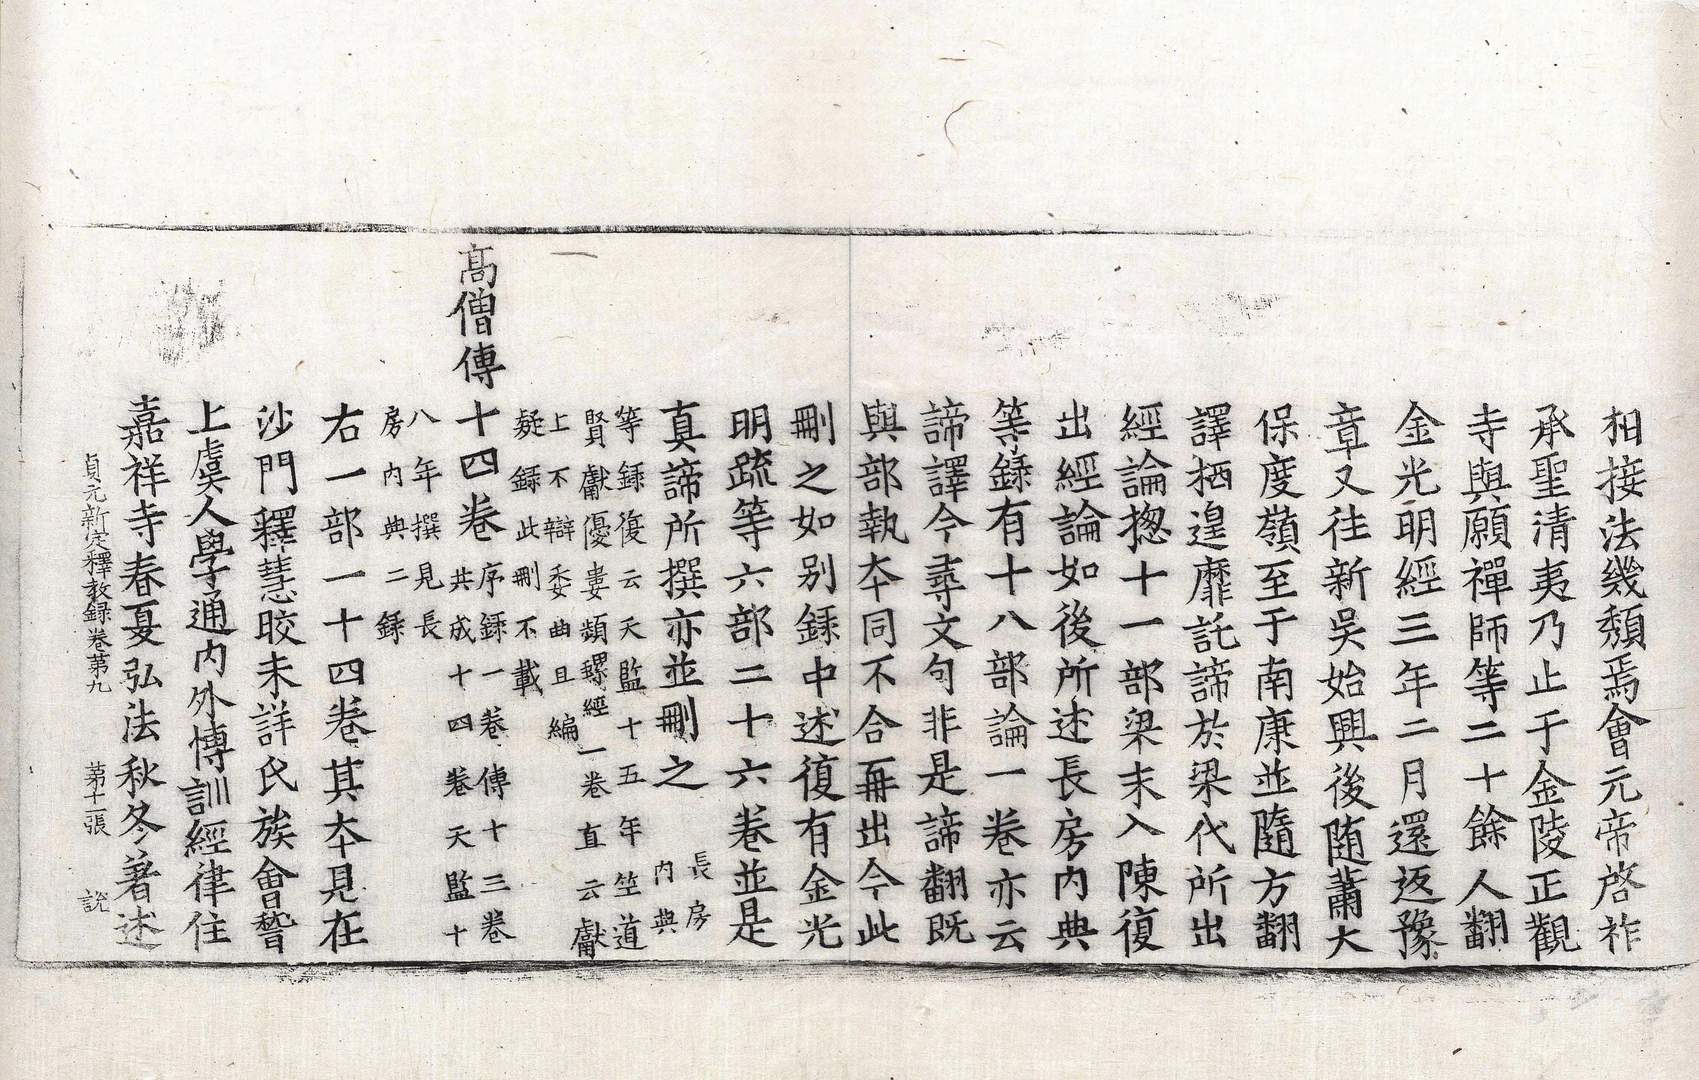 相接法幾頹焉會元帝啓祚
承聖清夷乃止于金陵正觀
寺與願禪師等二十餘人翻
金光明經三年二月還返豫
章又往新吳始興後隨蕭大
保度嶺至于南康並隨方翻
譯栖遑靡託諦於梁代所出
經論揔十一部梁末入陳復
出經論如後所述長房内典
等錄有十八部論一卷亦云
諦譯今尋文句非是諦翻既
與部執夲同不合再出今此
刪之如别錄中述復有金光
明疏等六部二十六卷並是
真諦所撰亦並刪之
長房
内典
等錄復云天監十五年笁道
賢獻優婁頻螺經一卷直云獻
上不辯委曲且編
疑錄此刪不載
髙僧傳十四卷
序錄一卷傳十三卷
共成十四卷天監十
八年撰見長
房内典二錄
右一部一十四卷其夲見在
沙門釋慧晈未詳氏族會稽
上虞人學通内外博訓經律住
嘉祥寺春夏弘法秋冬著述
貞元新定釋教録卷第九 第十二張 說